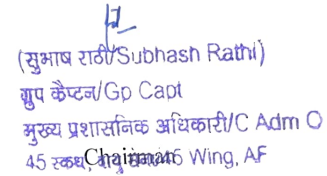 (सुभाष राठी/Subhash Rathi)
ग्रुप कैप्टन/Gp Capt
मुख्य प्रशासनिक अधिकारी/C Adm O
45 स्कंध, Chairman 45 Wing, AF